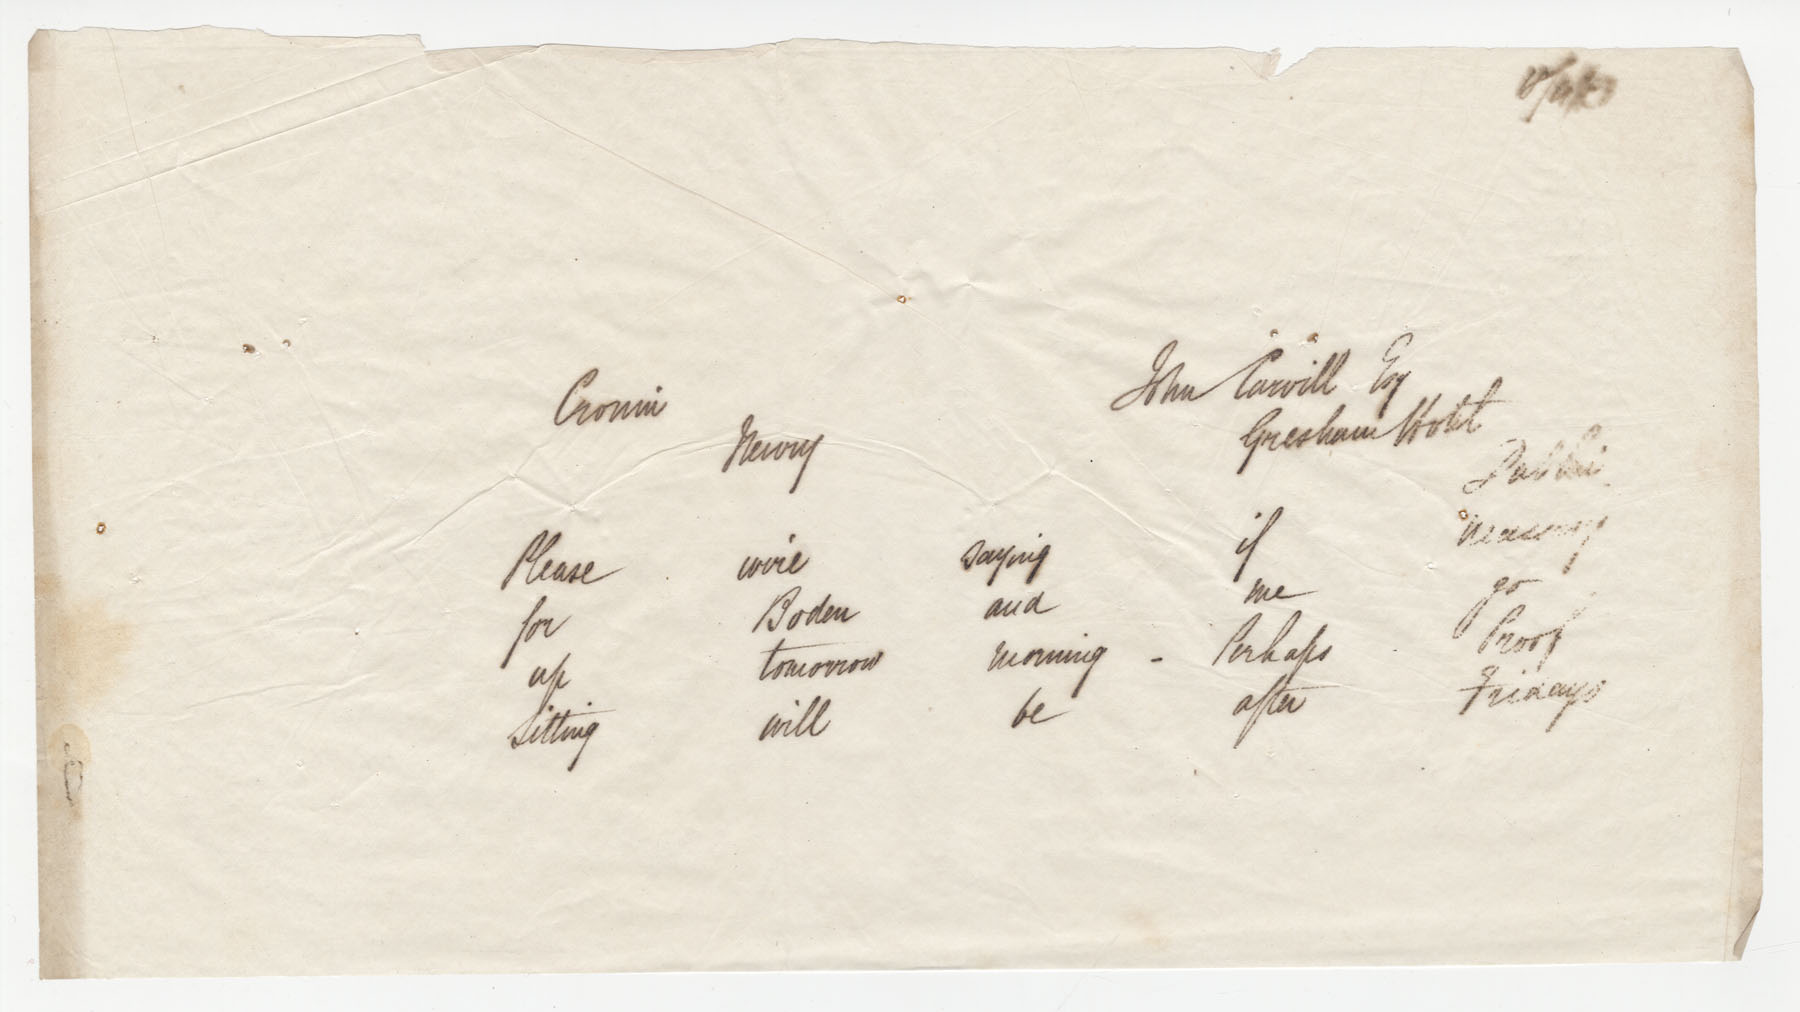 Cronin
Newry
John Carvill Esq
Gresham Hotel
Dublin
Please wire saying if necessary
for Boden and me go
up tomorrow morning - Perhaps Proof
Sitting will be after Fridays